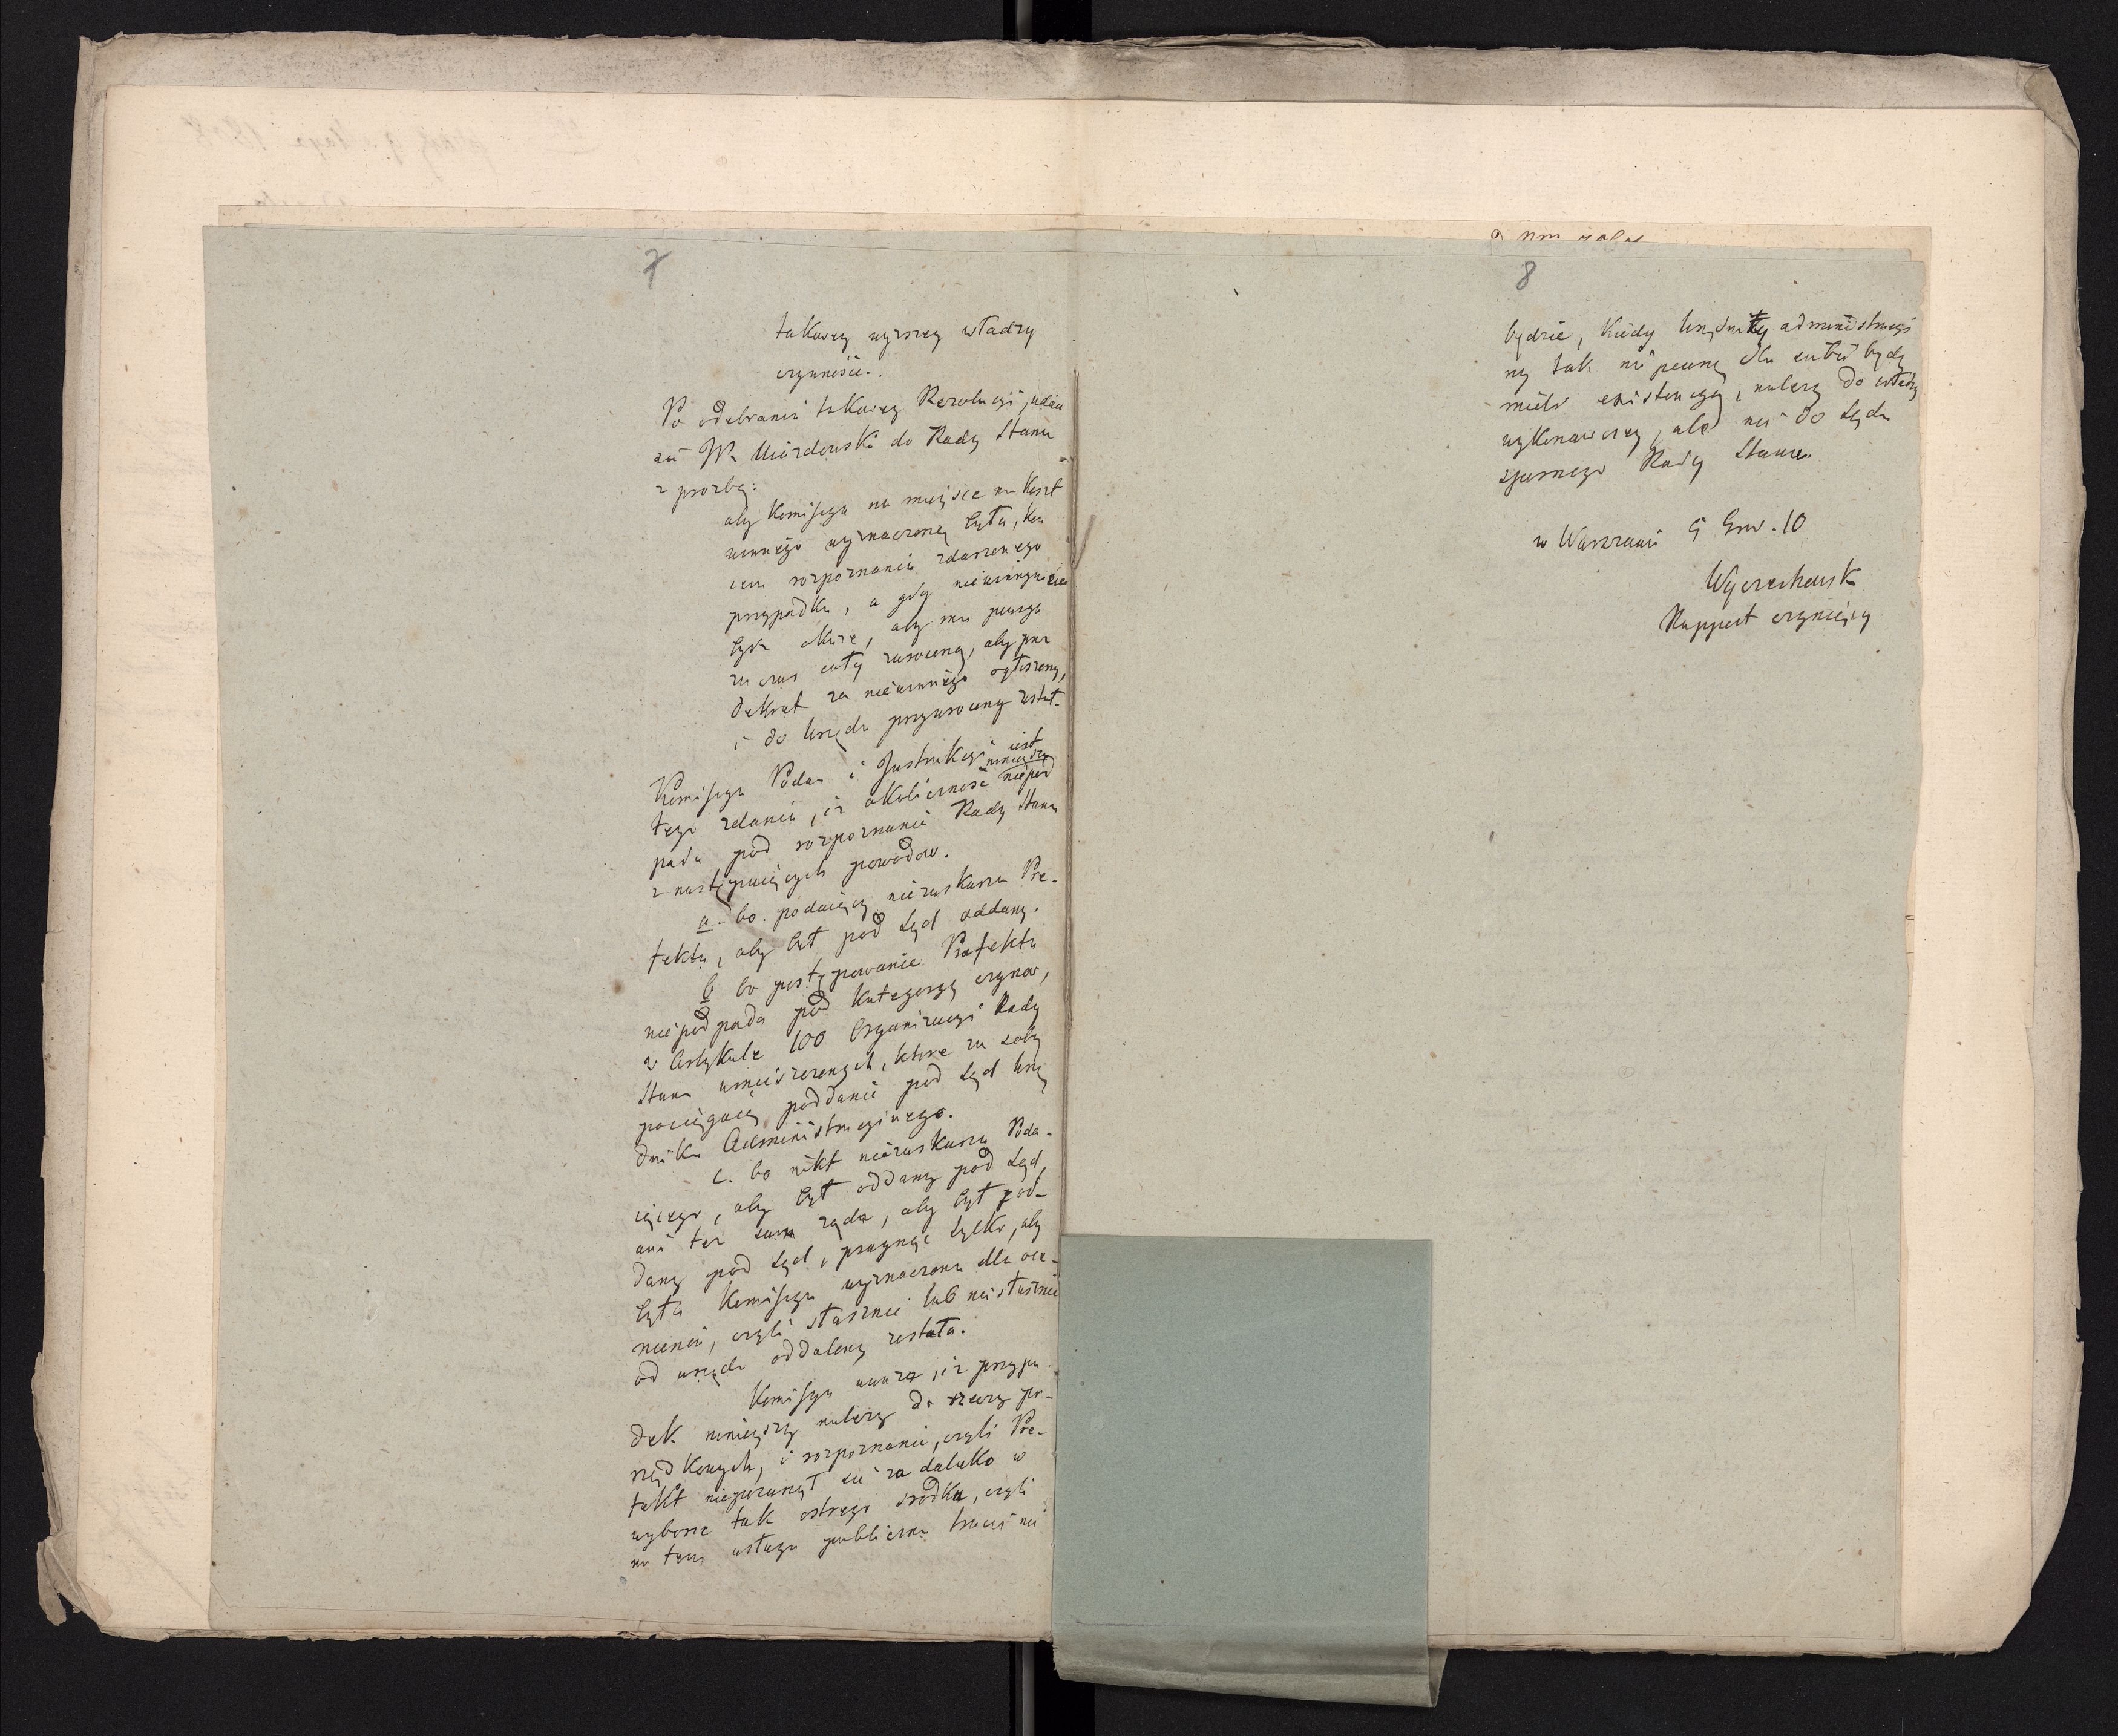 7
takowey wyższey władzy
czynności.
Po odebraniu takowey Rezolucyi, udaie
sie JP. Mierdowski do Rady Stanu
z prozbą:
aby Komissya na mieysce na koszt
winnego wyznaczoną była, ku
rozpoznania zdarzonego
przypadku, a gdy niewinnym
aby mu pensya
za czas cały zwrocona, aby przez
dekret za niewinnego ogłoszony,
i do urzędu przywrocony został.
Komissya Podan i Instrukcyi iest
tego zdania, iż okoliczność ninieysza niepod
pada pod rozpoznanie Rady Stanu
z następuiących powodow.
a. bo podaiący nie zaskarza Pre-
fekta, aby był pod sąd oddany.
b bo postępowanie Prefekta
niepodpada pod kategoryą czynow,
w Artykule 100 Organizacyi Rady
Stanu umieszczonych, ktore za sobą
pociągaią poddanie pod sąd Urzę
dnika Administracyinego.
c. bo nikt niezaskarza Poda-
iącego, aby był oddany pod sąd,
ani ten sam żąda, aby był pod-
dany pod sąd, pragnąc tylko, aby
była Komissya wyznaczona dla oce-
nienia, czyli słusznie lub niesłusznie
od urzędu oddalony został.
Komissya uważa, iż przypa-
dek ninieyszy należy do rzeczy po-
rządkowych, i rozpoznanie, czyli Pre-
fekt nieposunął się za daleko w
wyborze tak ostrego srodka, czyli
na tem usługa publiczna tracić nie
8
będzie, kiedy Urzędnicy administracyi
ny tak nie pewną dla siebie będą
mieli existencyą, należy do władzy
wykonawczey, ale nie do sądu
spornego Rady Stanu.
w Warszawie 9 Grud. 10
Wyczechowski
Rapport czyniący